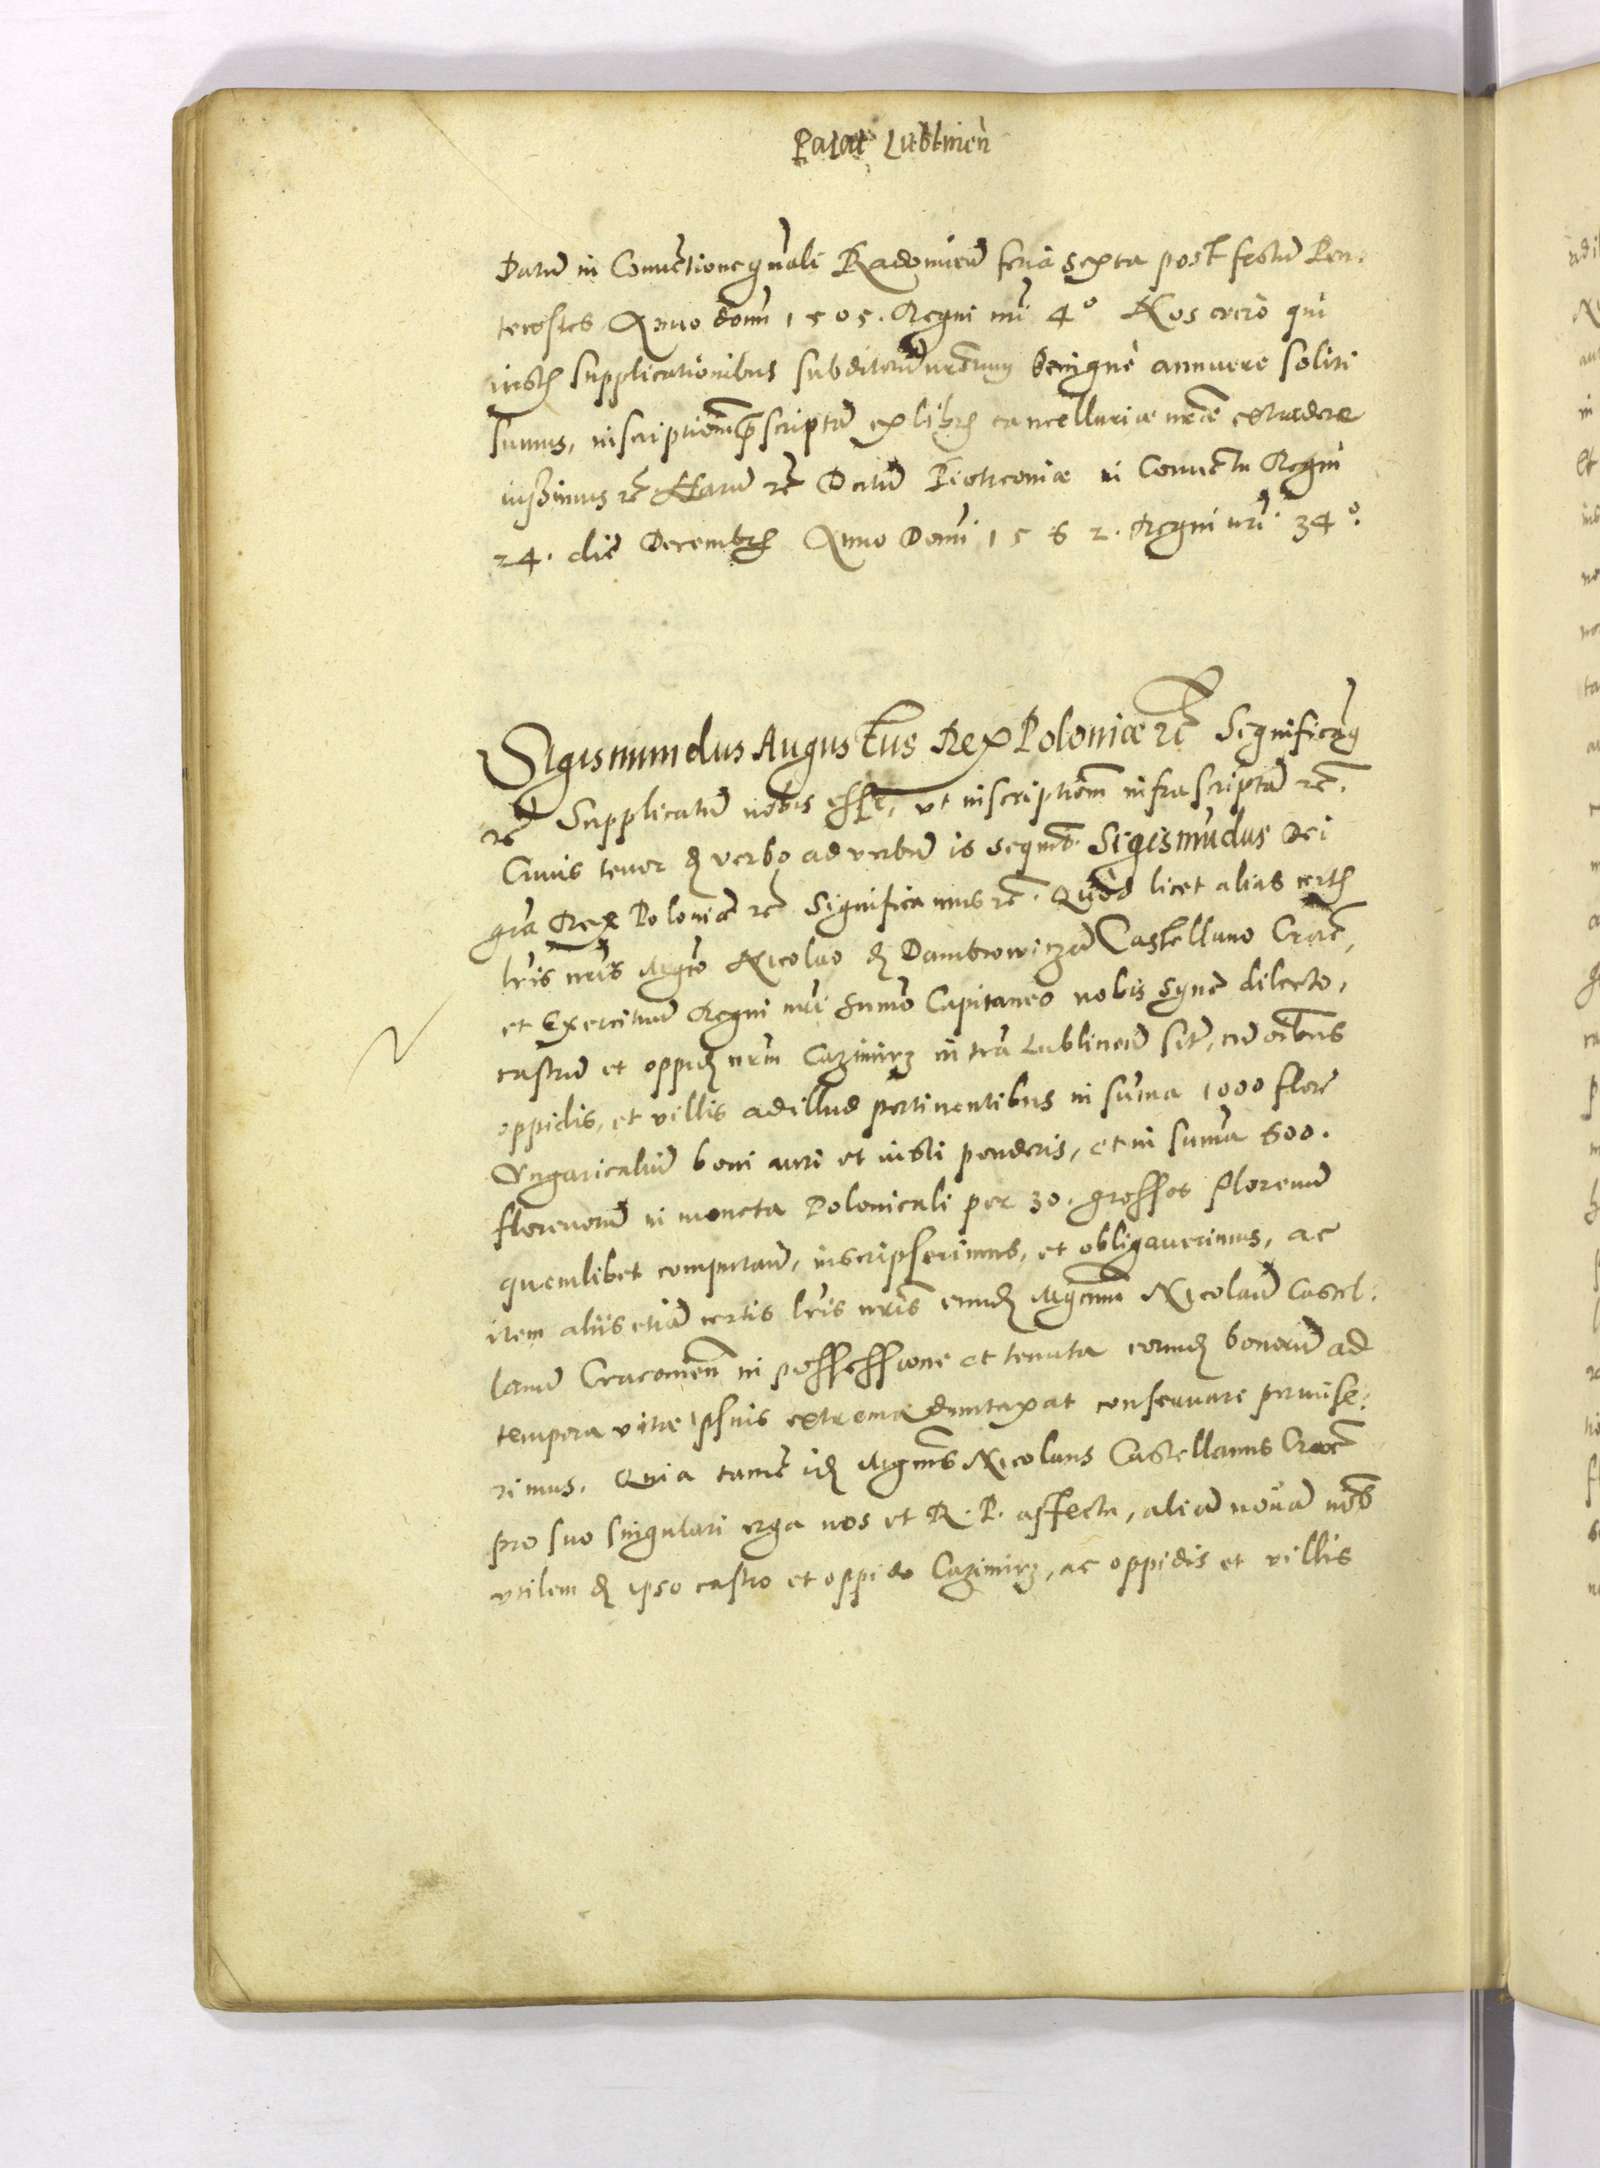 Palat Lublinen
Datũ in Conuẽtione gñali Radomien feria sexta post festũ Pen:
tecostes Anno domi 1505. Regni nri 4º Nos vero qui
iustis supplicationibus subditorũ nrorum benigne annuere soliti
sumus, inscriptionẽ pscriptã ex libris cancellariæ nræ extradere
iussimus rc Harũ rc Datũ Piotrcouiæ in Conuentu Regni
24. die Decembris Anno Domi 1562. Regni nri 34º.
Sigismundus Augustus Rex Poloniæ rc Significamus
rc Supplicatũ nobis esse, vt inscriptionẽ infra scriptã rc.
Cuius tenor de verbo ad verbũ is sequit. Sigismũdus Dei
gra Rex Poloniæ rc Significamus rc. Quod licet alias certis
lris nris Mgco Nicolao de Dambrowicza Castellano Crac,
et Exercituũ Regni nri sũmo Capitaneo nobis syne dilecto,
castrũ et oppid nrm Cazimirz in tra Lublinen sit, cũ oibus
oppidis, et villis ad illud pertinentibus in sũma 1000 flore
Vngaricaliũ boni auri et iusti ponderis, et in sũma 600.
florenorũ in moneta Polonicali per 30. grossos florenũ
quemlibet computan, inscripserimus, et obligauerimus, ac
item aliis etiã certis lris nris eund Mgcum Nicolaũ Castel:
lanũ Cracouien in possessione et tenuta eorund bonorũ ad
tempora vitæ ipsius extrema duntaxat conseruare promise:
rimus. Quia tamẽ id Mgcus Nicolaus Castellanus Crac
pro suo singulari erga nos et R. P. affectu, aliã nouã nob
vtilem de ipso castro et oppido Cazimirz, ac oppidis et villis